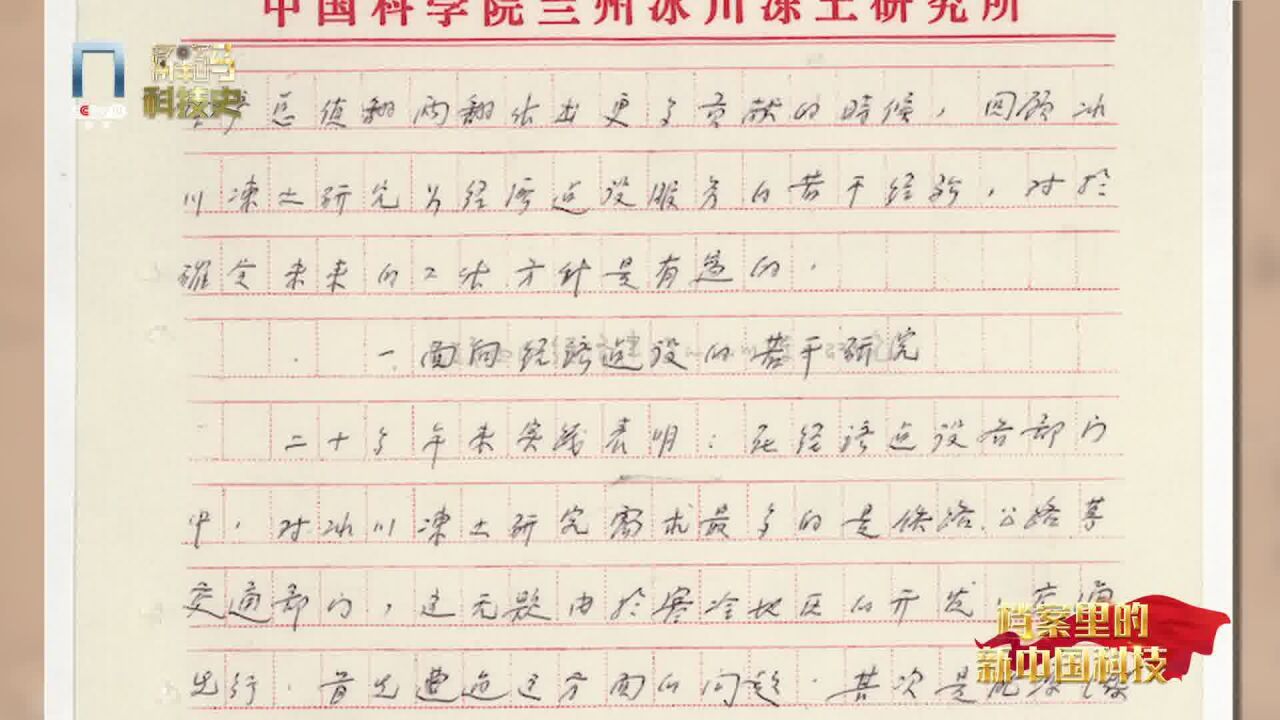 中国科学院兰州冰川冻土研究所
科技史
总值翻两翻作出更多贡献的時候，回顾冰
川冻土研究为经济建设服务的若干经验，对於
确定未来的工作方针是有益的．
一 面向经济建设的若干研究
二十多年来实践表明：在经济建设各部门
中，对冰川冻土研究需求最多的是铁路、公路等
交通部门，这无疑由於寒冷地区的开发，交通
先行．首先遭遇这方面的问题．其次是
档案里的
新中国科技